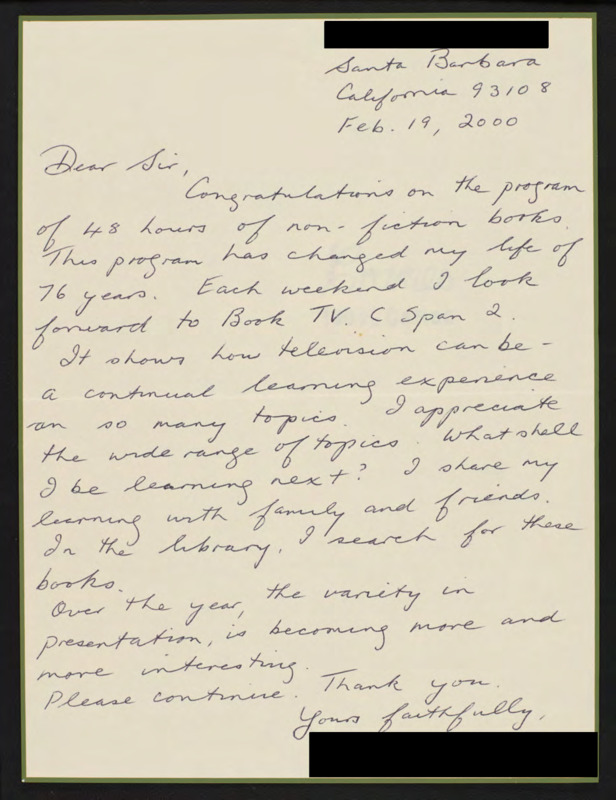 Santa Barbara
California 93108
Feb. 19, 2000
Dear Sir,
Congratulations on the program
of 48 hours of non-fiction books.
This program has changed my life of
76 years. Each weekend I look
forward to Book TV. C Span 2.
It shows how television can be -
a continual learning experience
on so many topics. I appreciate
the wide range of topics. What shall
I be learning next? I share my
learning with family and friends.
In the library, I search for these
books.
Over the year, the variety in
presentation, is becoming more and
more interesting.
Please continue. Thank you.
Yours faithfully,